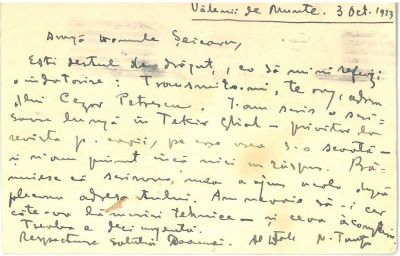 Vălenii de Munte. 3 Oct. 1923
Dragă Domnule Șeicaru,
Ești destul de drăguț, ca să nu-mi refuzi
o îndatorire: Transmite-mi, te rog, adresa
dlui Cezar Petrescu. I-am scris o scri-
soare lungă în Tekir Ghiol – privitor la
revista p. copii, pe care vrea s-o scoată –
și n-am primit încă nici un răspuns. Bă-
nuiesc că scrisoarea mea a ajuns acolo după
plecarea adresantului. Am nevoie să-i cer
câte-va lămuriri tehnice – și ceva
Treaba e deci urgentă.
Respectuoase salutări Doamnei. Al D-tale N.